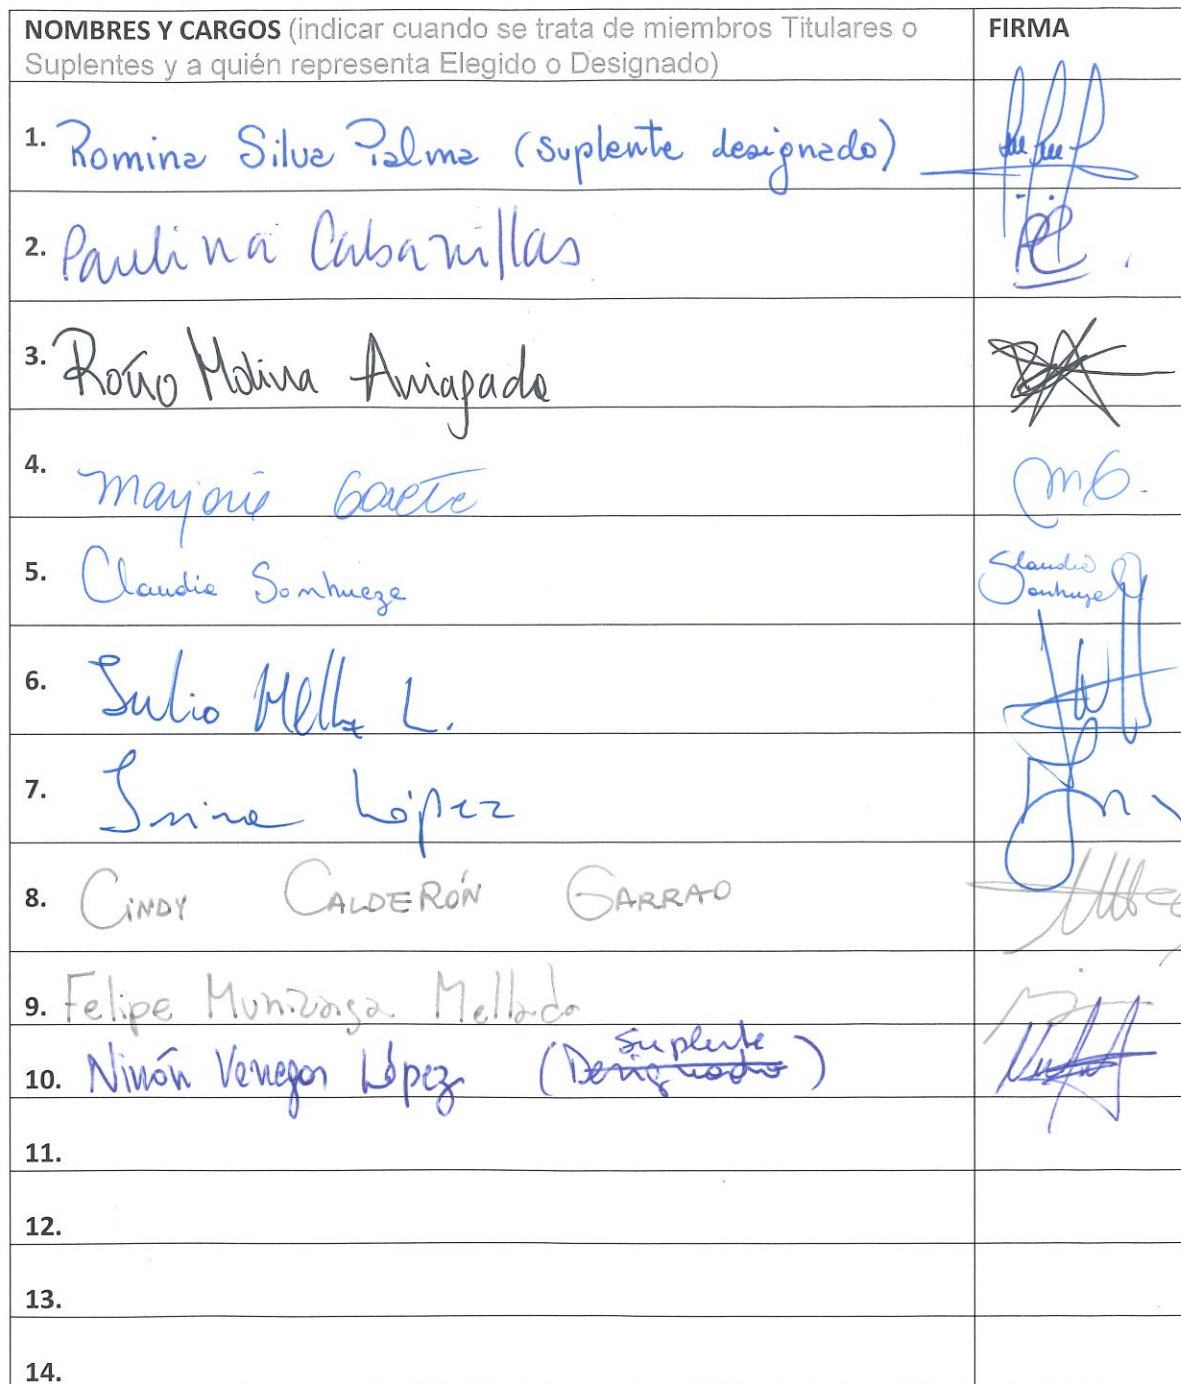 NOMBRES Y CARGOS (indicar cuando se trata de miembros Titulares o
Suplentes y a quién representa Elegido o Designado)
FIRMA
1. Romina Silva Palma (suplente designado)
2. Paulina Cabanillas
3. Rocío Molina Arriagada
4. Marjorie Gaete
MG.
5. Claudia Sanhueza
Claudia
Sanhueza
6. Julio Mella L.
7. Irina López
8. CINDY CALDERÓN GARRAO
9. Felipe Munizaga Mellado
Suplente
10. Ninón Venegas López (Designado)
11.
12.
13.
14.